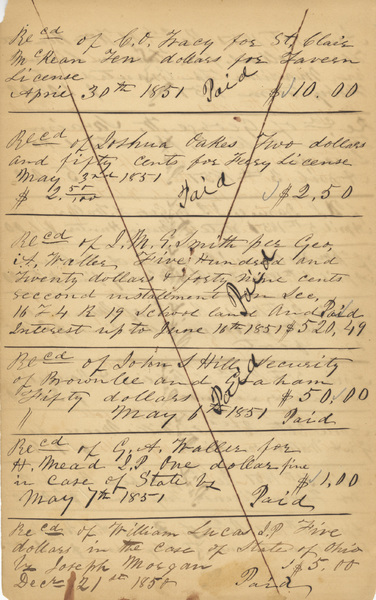 Recd of C. O. Tracy for St. Clair
McKean Ten dollars for Tavern
License
April 30th 1851 Paid $10.00
Recd of Joshua Oakes Two dollars
and fifty cents for Ferry License
May 3rd 1851
$ 2.50/100 Paid $2,50
Recd of J. M. G. Smith per Geo,
A. Waller Five Hundred and
Twenty dollars & forty nine cents
seccond installment on Sec,
16 T 4 R 19 School land And Paid
Interest up to June 16th 1851 $520,49
Paid
Recd of John S Hill Security
of Brownlee and
Fifty dollars Paid $50.00
" May 6th 1851 Paid
Recd of G. A. Waller for
H. Mead J.P. One dollar fine
in case of State vs $1,00
May 7th 1851 Paid
Recd of William Lucas J.P Five
dollars in the case of State of Ohio
vs Joseph Morgan $5.00
Decr 21st 1850 Paid